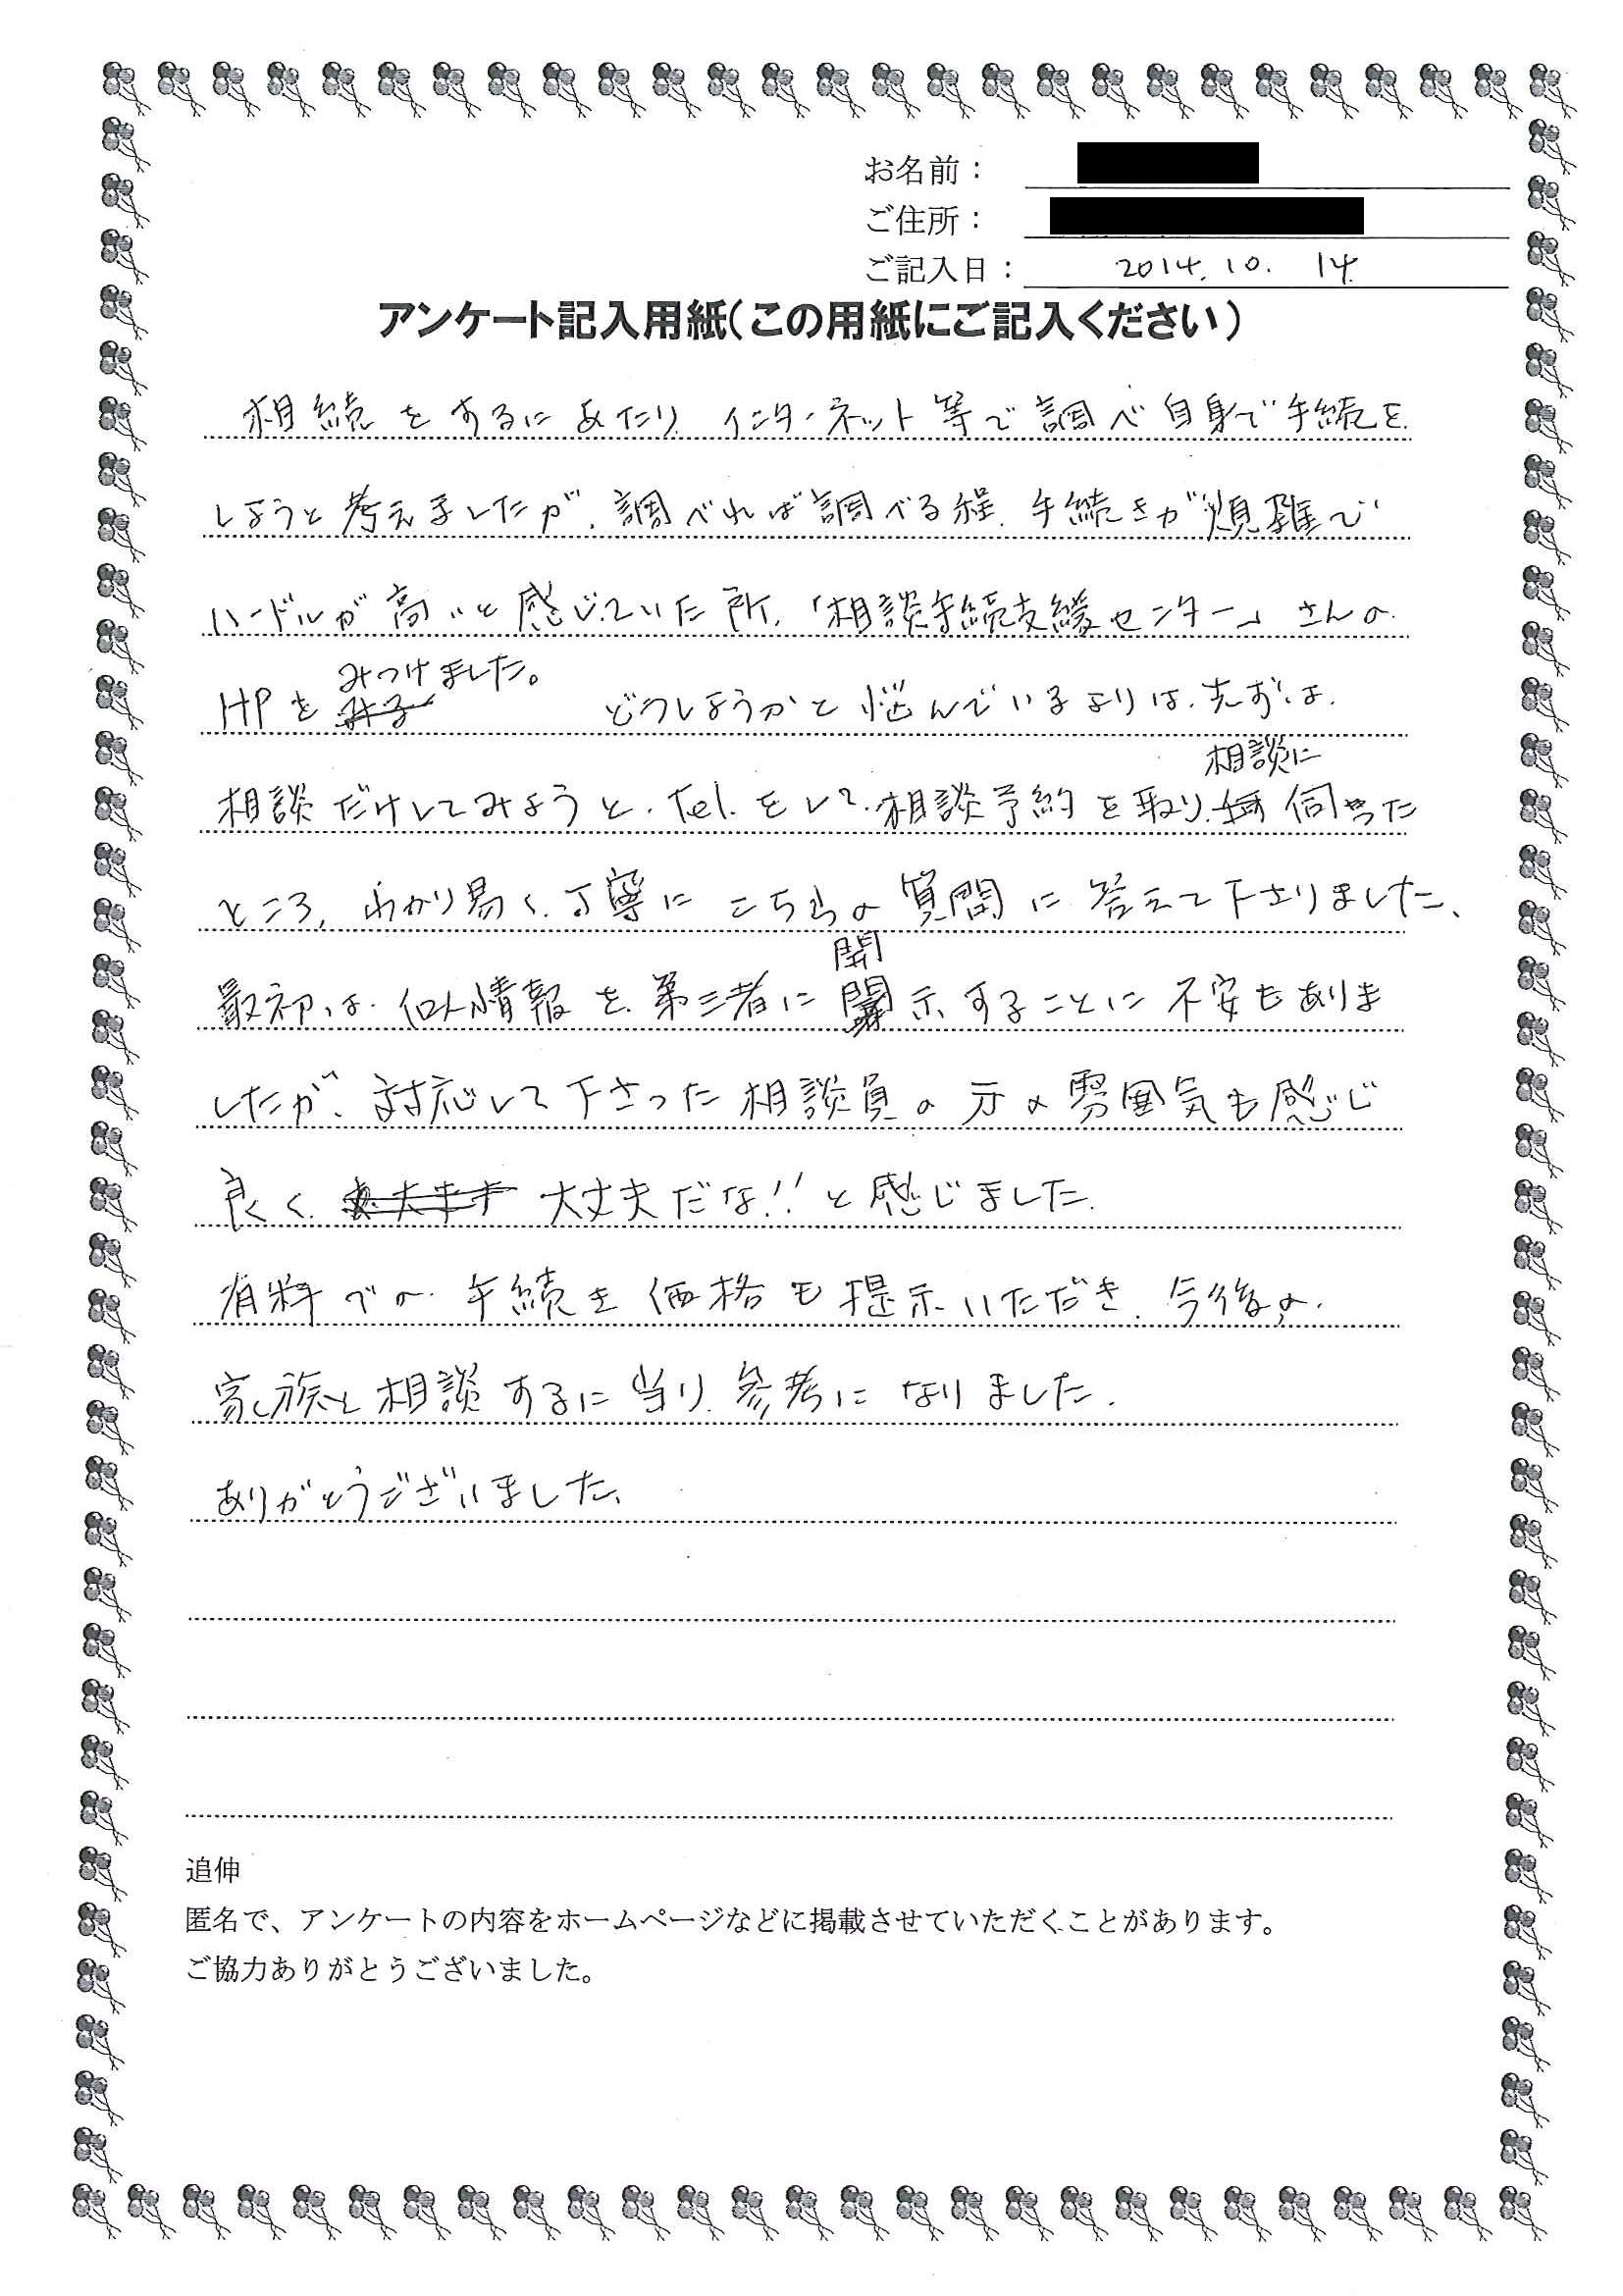 お名前：
ご住所：
ご記入日： 2014. 10. 14
アンケート記入用紙(この用紙にご記入ください)
相続をするにあたり インターネット等で調べ自身で手続を
しようと考えましたが、調べれば調べる程、手続きが煩雑で
ハードルが高いと感じていた所、「相談手続支援センター」さんの
HPをみつけました。 どうしようかと悩んでいるよりは、先ずは、
相談だけしてみようと、Tel.をして、相談予約を取り、相談に伺った
ところ、わかり易く、丁寧にこちらの質問に答えて下さりました、
最初は、個人情報を第三者に開示することに不安もありま
したが、対応して下さった相談員の方の雰囲気も感じ
良く、大丈夫だな!!と感じました.
有料での手続き価格も提示いただき、今後の、
家族と相談するに当り、参考になりました.
ありがとうございました、
追伸
匿名で、アンケートの内容をホームページなどに掲載させていただくことがあります。
ご協力ありがとうございました。